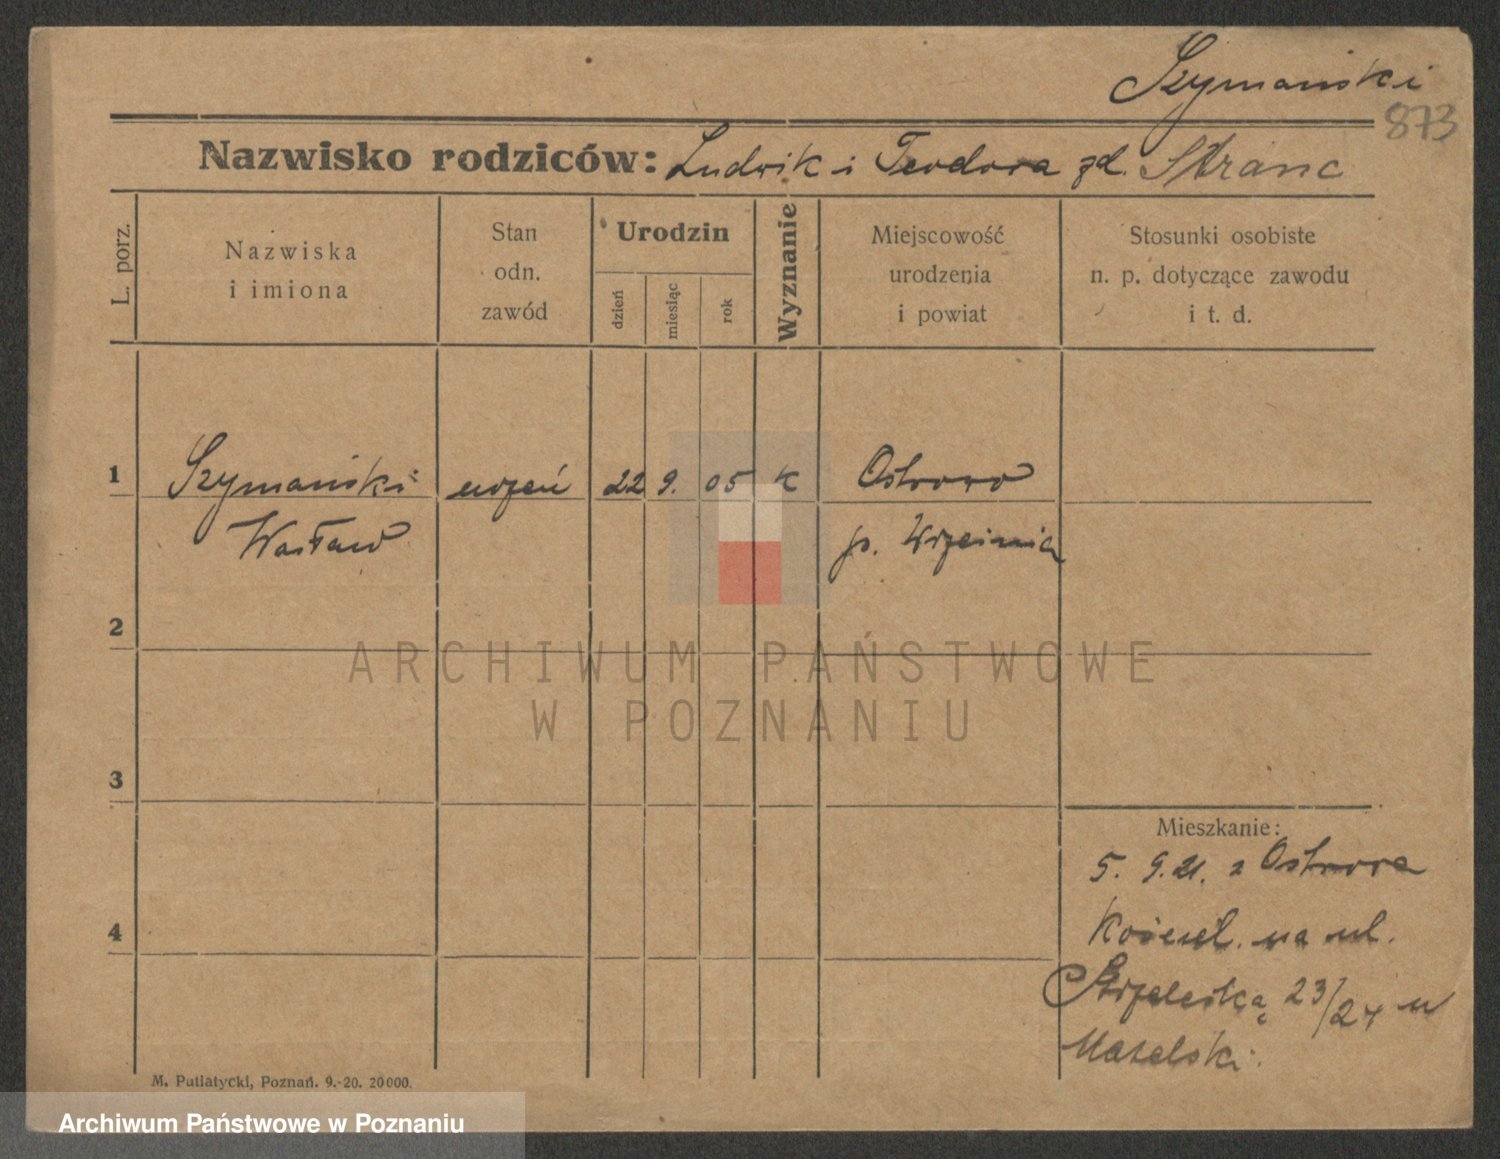 Szymański
873
Nazwisko rodziców: Ludwik i Teodora zd. Stranc
L. porz.
Nazwiska
i imiona
Stan
odn.
zawód
Urodzin
dzień
miesiąc
rok
Wyznanie
Miejscowość
urodzenia
i powiat
Stosunki osobiste
n. p. dotyczące zawodu
i t. d.
1 Szymański uczeń 22 9. 05 K Ostrowo
Wacław p. Września
2
ARCHIWUM PAŃSTWOWE
W POZNANIU
3
4
Mieszkanie:
5. 9. 21. z Ostrowa
Kościel. na ul.
Strzelecką 23/24 u
M. Putiatycki, Poznań. 9.-20. 20000.
Archiwum Państwowe w Poznaniu